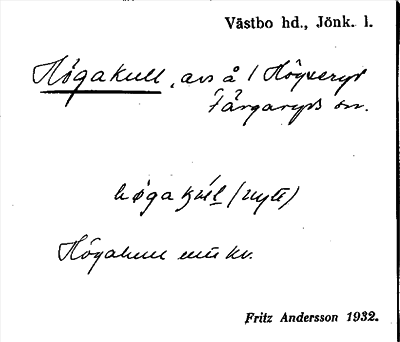 Västbo hd., Jönk. l.
Högakull, avs å 1 Högseryd
Färgaryds sn.
högakul (nytt)
Högakull enu kv.
Fritz Andersson 1932.